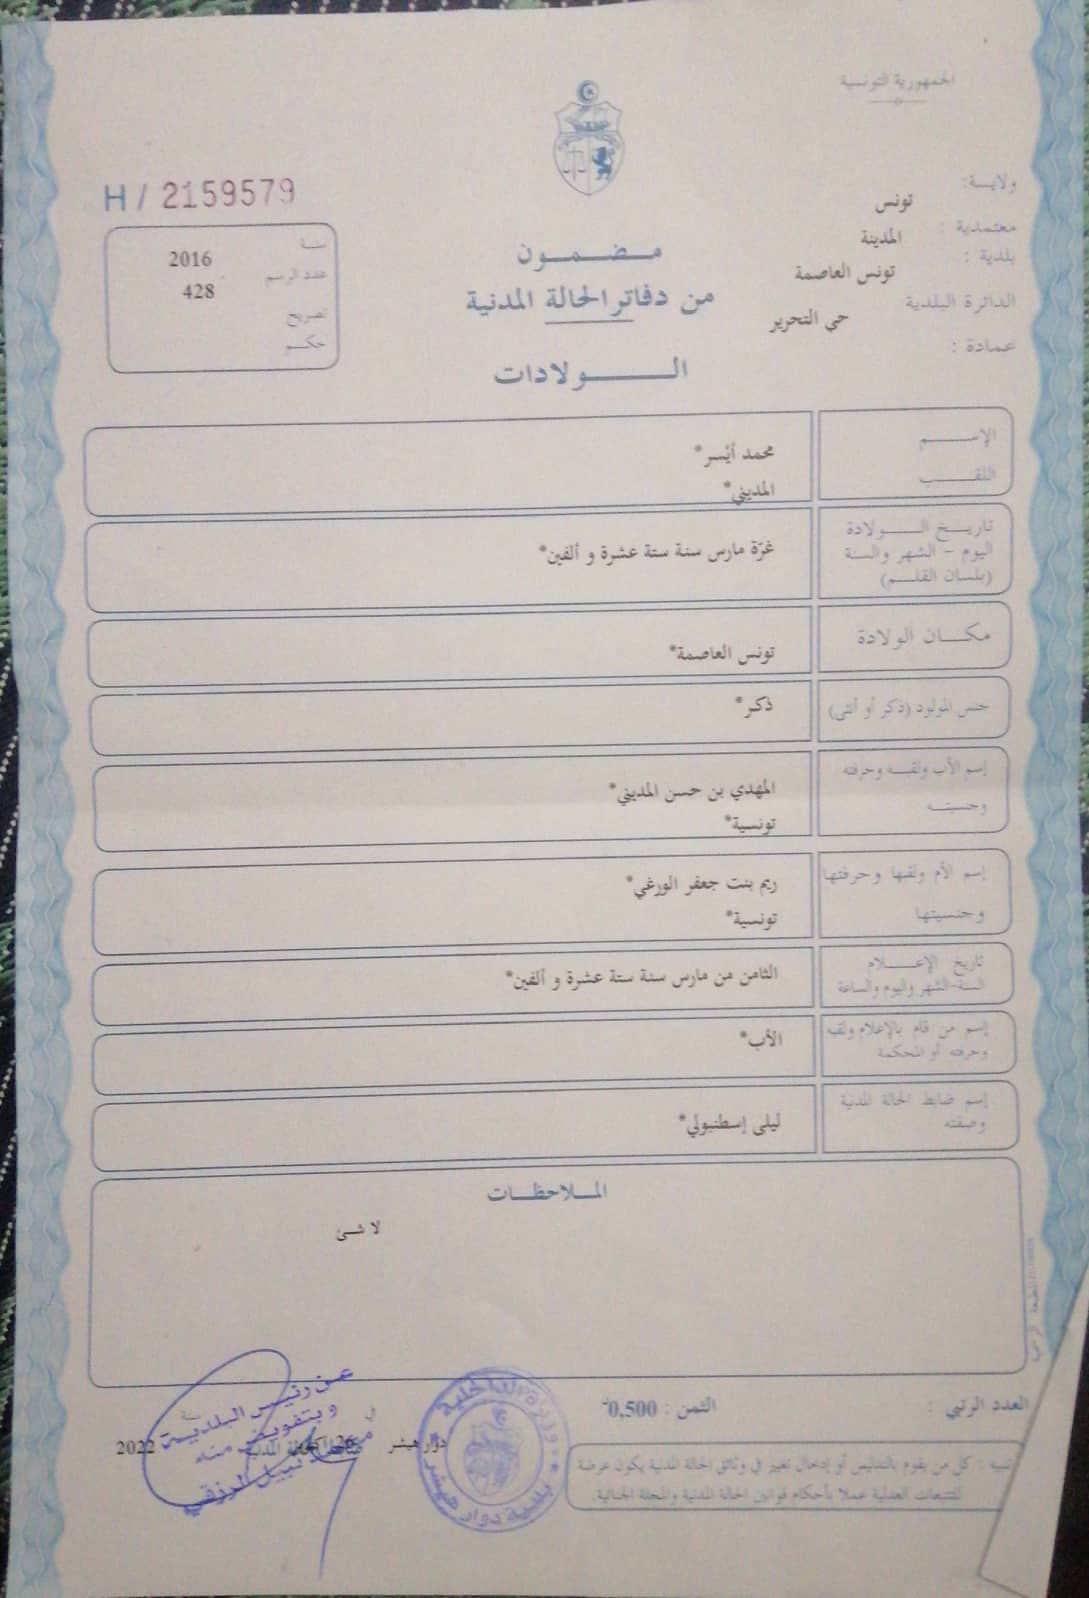 الجمهورية التونسية
ولايــة: تونس
معتمدية : المدينة
بلدية : تونس العاصمة
الدائرة البلدية حي التحرير
عمادة :
H / 2159579
سنــة 2016
عدد الرسم 428
تصريح
حكــم
مـضـمـــون
من دفاتر الحالة المدنية
الـــــولادات
الإســـــم محمد أيْسر*
اللقـــــب المديني*
تاريــخ الـــــولادة
اليوم - الشهر والسنة غرّة مارس سنة ستة عشرة و ألفين*
(بلسان القلــم)
مكــــان الولادة تونس العاصمة*
جنس المولود (ذكر أو أنثى) ذكر*
إسم الأب ولقبــه وحرفته المهدي بن حسن المديني*
وجنسيتــه تونسية*
إسم الأم ولقبها وحرفتها ريم بنت جعفر الورغي*
وجنسيتها تونسية*
تاريخ الإعـــــلام الثامن من مارس سنة ستة عشرة و ألفين*
السنة-الشهر واليوم والساعة
إسم من قام بالإعلام ولقبه الأب*
وحرفته أو المحكمة
إسم ضابط الحالة المدنية ليلى إسطنبولي*
وصفته
المــلاحظــات
لا شــئ
العدد الرتبي :
الثمن : 0,500
تنبيه : كل من يقوم بالتدليس أو إدخال تغيير في وثائق الحالة المدنية يكون عرضة
للتتبعات العدلية عملا بأحكام قوانين الحالة المدنية والمجلة الجنائية.
دوار هيشر في 26 سنة 2022
الحالة المدنية
وزارة الداخلية
بلدية دوار هيشر
عن رئيس البلدية
وبتفويض منه
نبيل المرزقي